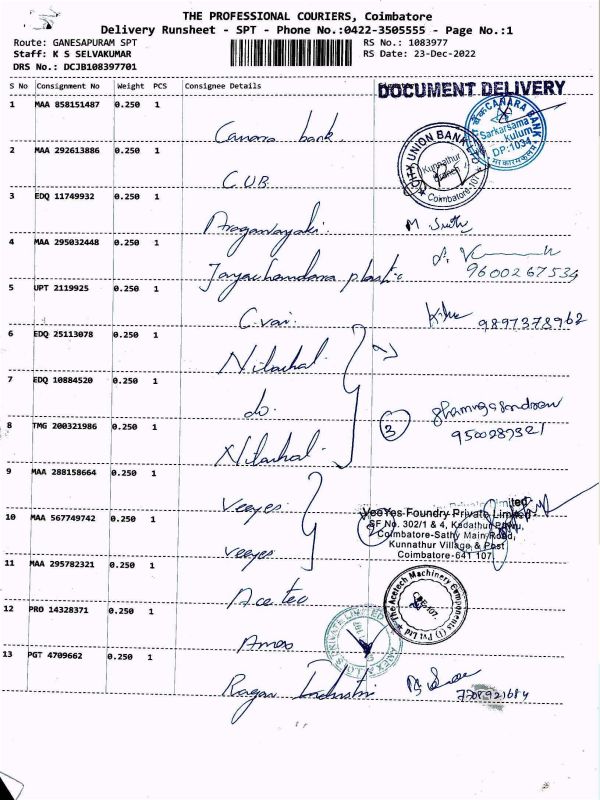 THE PROFESSIONAL COURIERS, Coimbatore
Delivery Runsheet - SPT - Phone No.:0422-3505555 - Page No.:1
Route: GANESAPURAM SPT
Staff: K S SELVAKUMAR
DRS No.: DCJB108397701
RS No.: 1083977
RS Date: 23-Dec-2022
S No Consignment No Weight PCS Consignee Details
DOCUMENT DELIVERY
1 MAA 858151487 0.250 1 Canara bank
CANARA BANK
Sarkarsama kulum
DP:1034
2 MAA 292613886 0.250 1 C.U.B.
CITY UNION BANK LTD
Kunnathur Branch
Coimbatore-107
3 EDQ 11749932 0.250 1
4 MAA 295032448 0.250 1 Jayachandara plastic
9600267534
5 UPT 2119925 0.250 1
9897378962
6 EDQ 25113078 0.250 1 Nilachal
7 EDQ 10884520 0.250 1 do
8 TMG 200321986 0.250 1 Nilachal
3
9500287321
9 MAA 288158664 0.250 1 Veeyes
VeeYes Foundry Private Limited
SF No. 302/1 & 4, Kadathur Pirivu,
Coimbatore-Sathy Main Road,
Kunnathur Village & Post
Coimbatore-641 107
10 MAA 567749742 0.250 1 Veeyes
2
11 MAA 295782321 0.250 1 Ace tec
The Acetech Machinery Components (I) Pvt Ltd
12 PRO 14328371 0.250 1
PRIVATE LIMITED
13 PGT 4709662 0.250 1